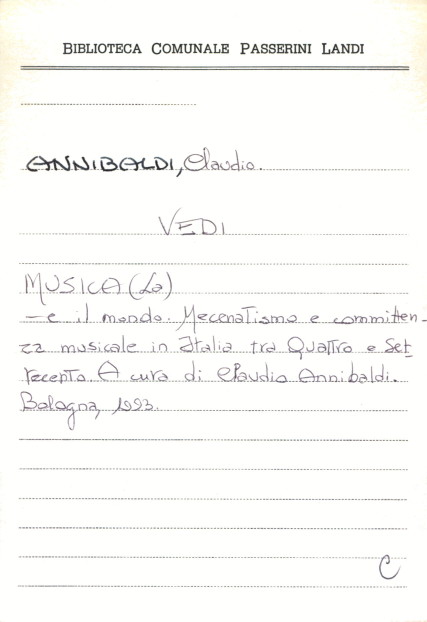 BIBLIOTECA COMUNALE PASSERINI LANDI
ANNIBALDI, Claudio.
VEDI
MUSICA (La)
- e il mondo. Mecenatismo e committen-
za musicale in Italia tra Quattro e Set
tecento. A cura di Claudio Annibaldi.
Bologna, 1993.
C